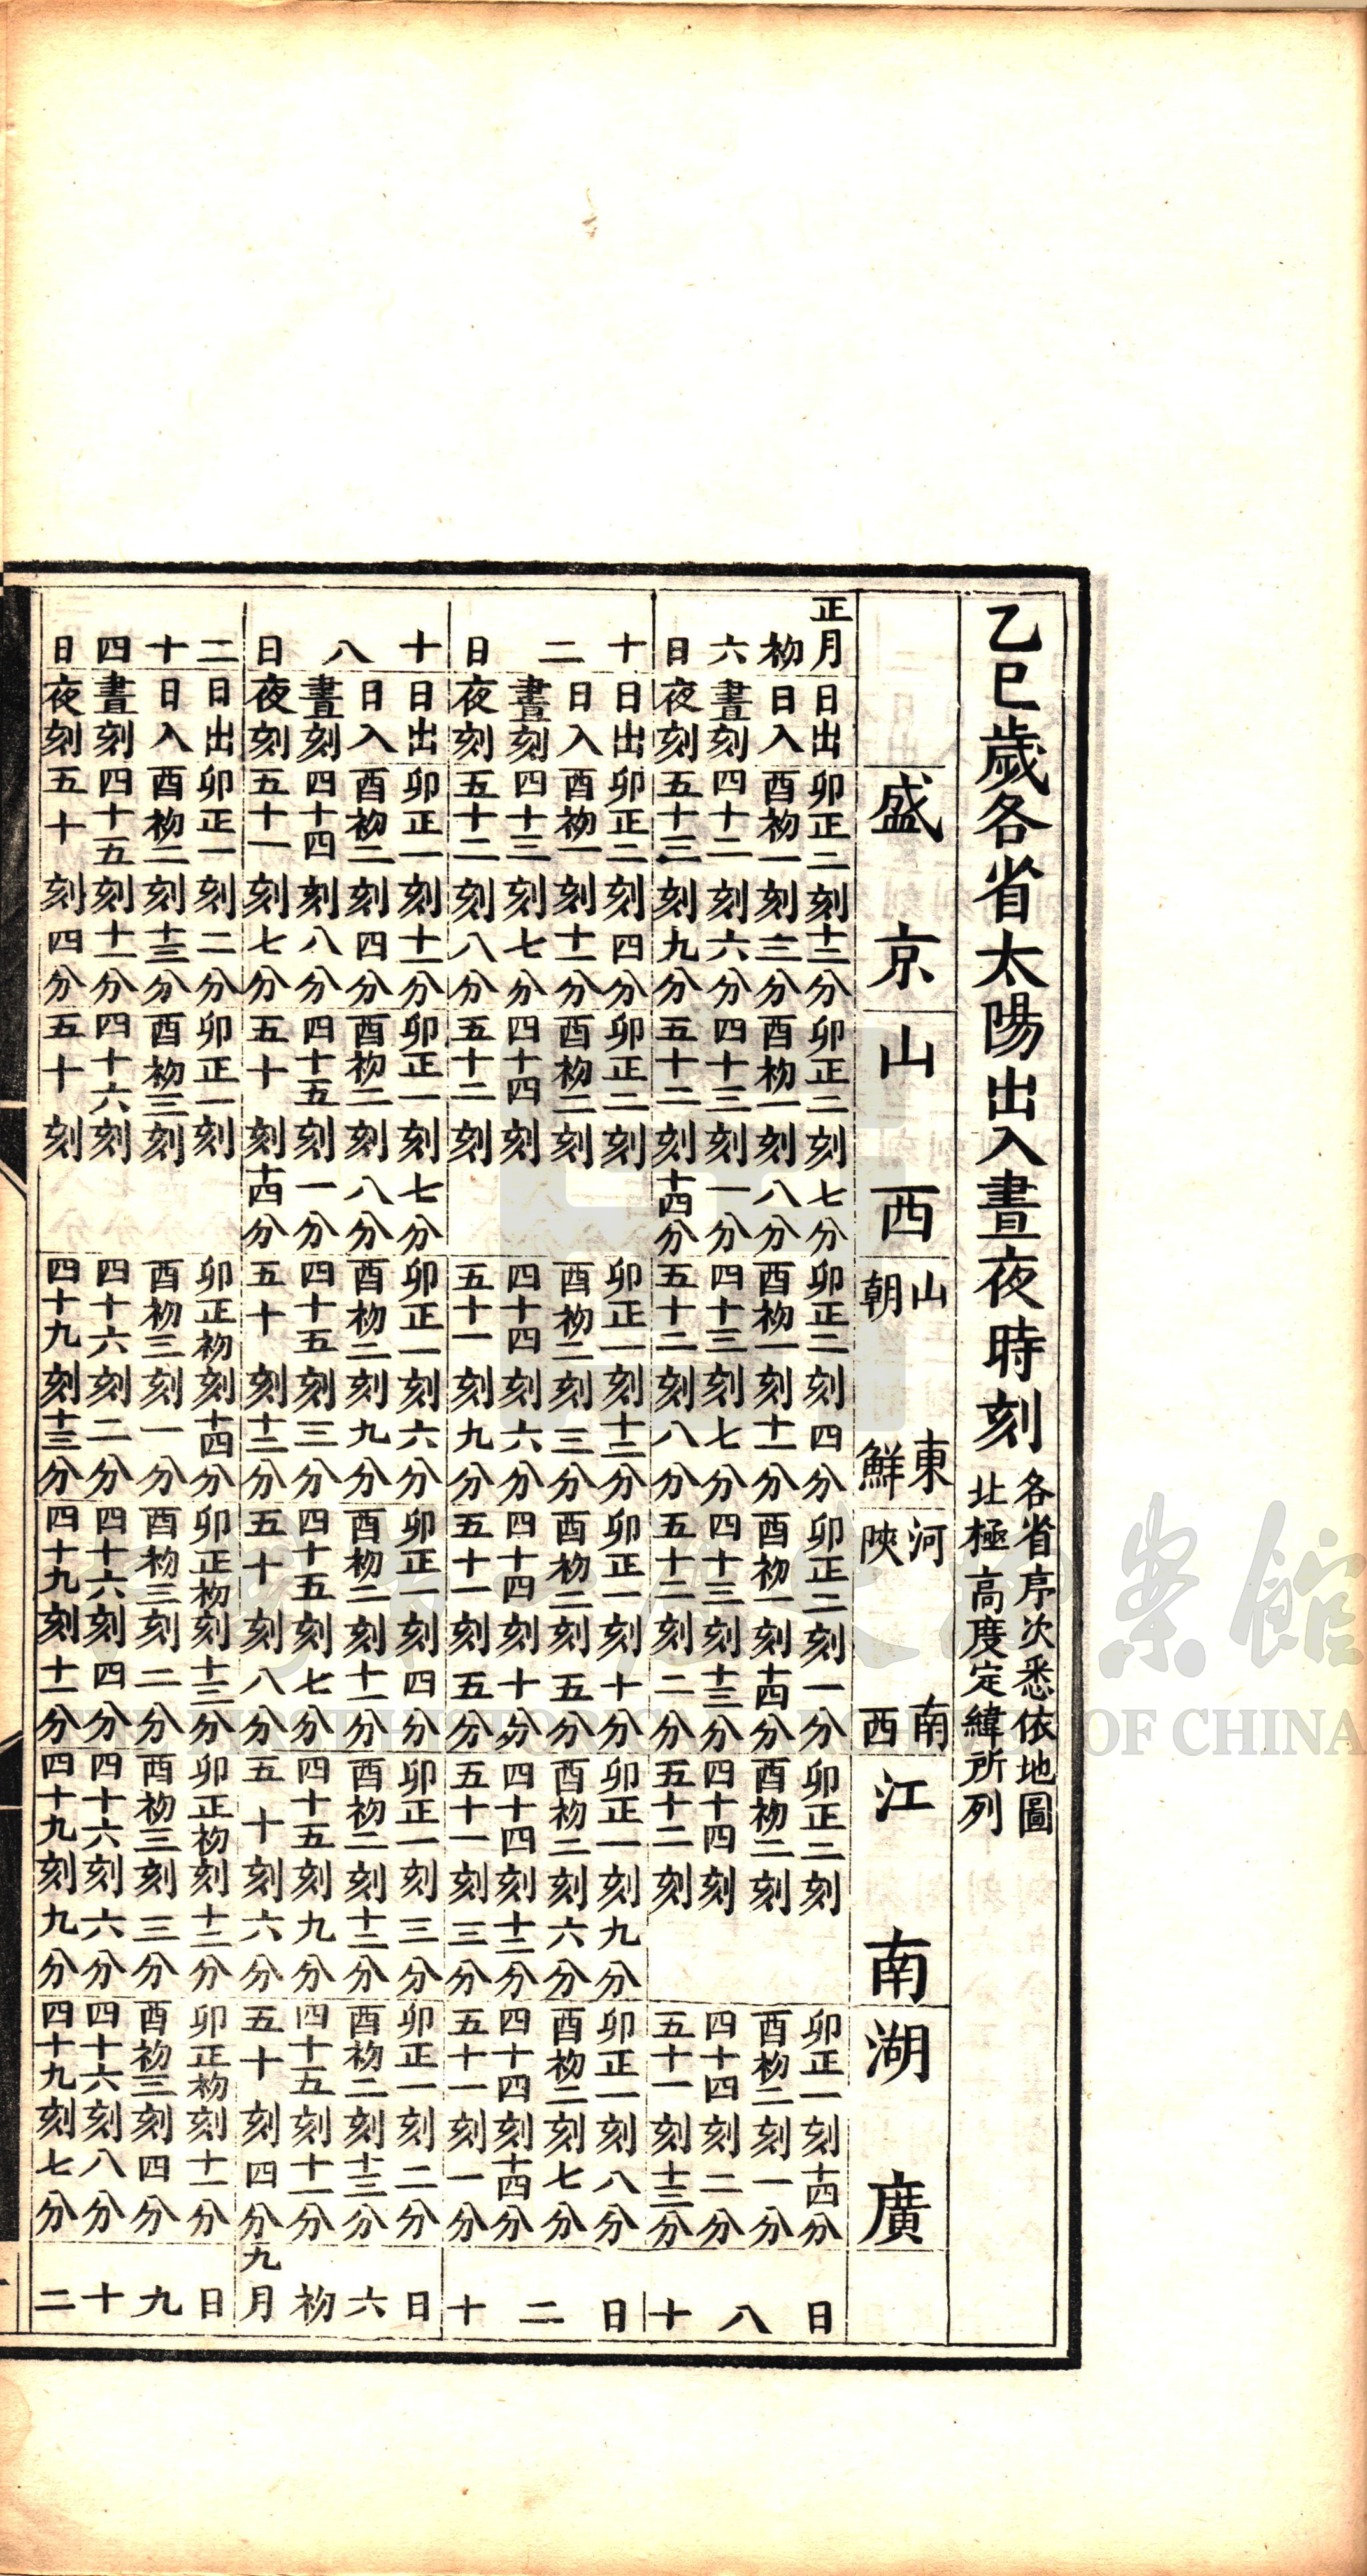 乙巳歲各省太陽出入晝夜時刻
各省序次悉依地圖
北極高度定緯所列
盛京 山西 山東 朝鮮 河南 陝西 江南 湖廣
正月 日出 卯正二刻十二分 卯正二刻七分 卯正二刻四分 卯正二刻一分 卯正二刻 卯正一刻十四分 日
初 日入 酉初一刻三分 酉初一刻八分 酉初一刻十一分 酉初一刻十四分 酉初二刻 酉初二刻一分
六 晝刻 四十二刻六分 四十三刻一分 四十三刻七分 四十三刻十三分 四十四刻 四十四刻二分 八
日 夜刻 五十三刻九分 五十二刻十四分 五十二刻八分 五十二刻二分 五十二刻 五十一刻十三分 十
十 日出 卯正二刻四分 卯正二刻 卯正一刻十二分 卯正一刻十分 卯正一刻九分 卯正一刻八分 日
二 日入 酉初一刻十一分 酉初二刻 酉初二刻三分 酉初二刻五分 酉初二刻六分 酉初二刻七分 二
晝刻 四十三刻七分 四十四刻 四十四刻六分 四十四刻十分 四十四刻十二分 四十四刻十四分
日 夜刻 五十二刻八分 五十二刻 五十一刻九分 五十一刻五分 五十一刻三分 五十一刻一分 十
十 日出 卯正一刻十一分 卯正一刻七分 卯正一刻六分 卯正一刻四分 卯正一刻三分 卯正一刻二分 日
八 日入 酉初二刻四分 酉初二刻八分 酉初二刻九分 酉初二刻十一分 酉初二刻十二分 酉初二刻十三分 六
晝刻 四十四刻八分 四十五刻一分 四十五刻三分 四十五刻七分 四十五刻九分 四十五刻十一分 初
日 夜刻 五十一刻七分 五十刻十四分 五十刻十二分 五十刻八分 五十刻六分 五十刻四分 九月
二 日出 卯正一刻二分 卯正一刻 卯正初刻十四分 卯正初刻十三分 卯正初刻十二分 卯正初刻十一分 日
十 日入 酉初二刻十三分 酉初三刻 酉初三刻一分 酉初三刻二分 酉初三刻三分 酉初三刻四分 九
四 晝刻 四十五刻十一分 四十六刻 四十六刻二分 四十六刻四分 四十六刻六分 四十六刻八分 十
日 夜刻 五十刻四分 五十刻 四十九刻十三分 四十九刻十一分 四十九刻九分 四十九刻七分 二